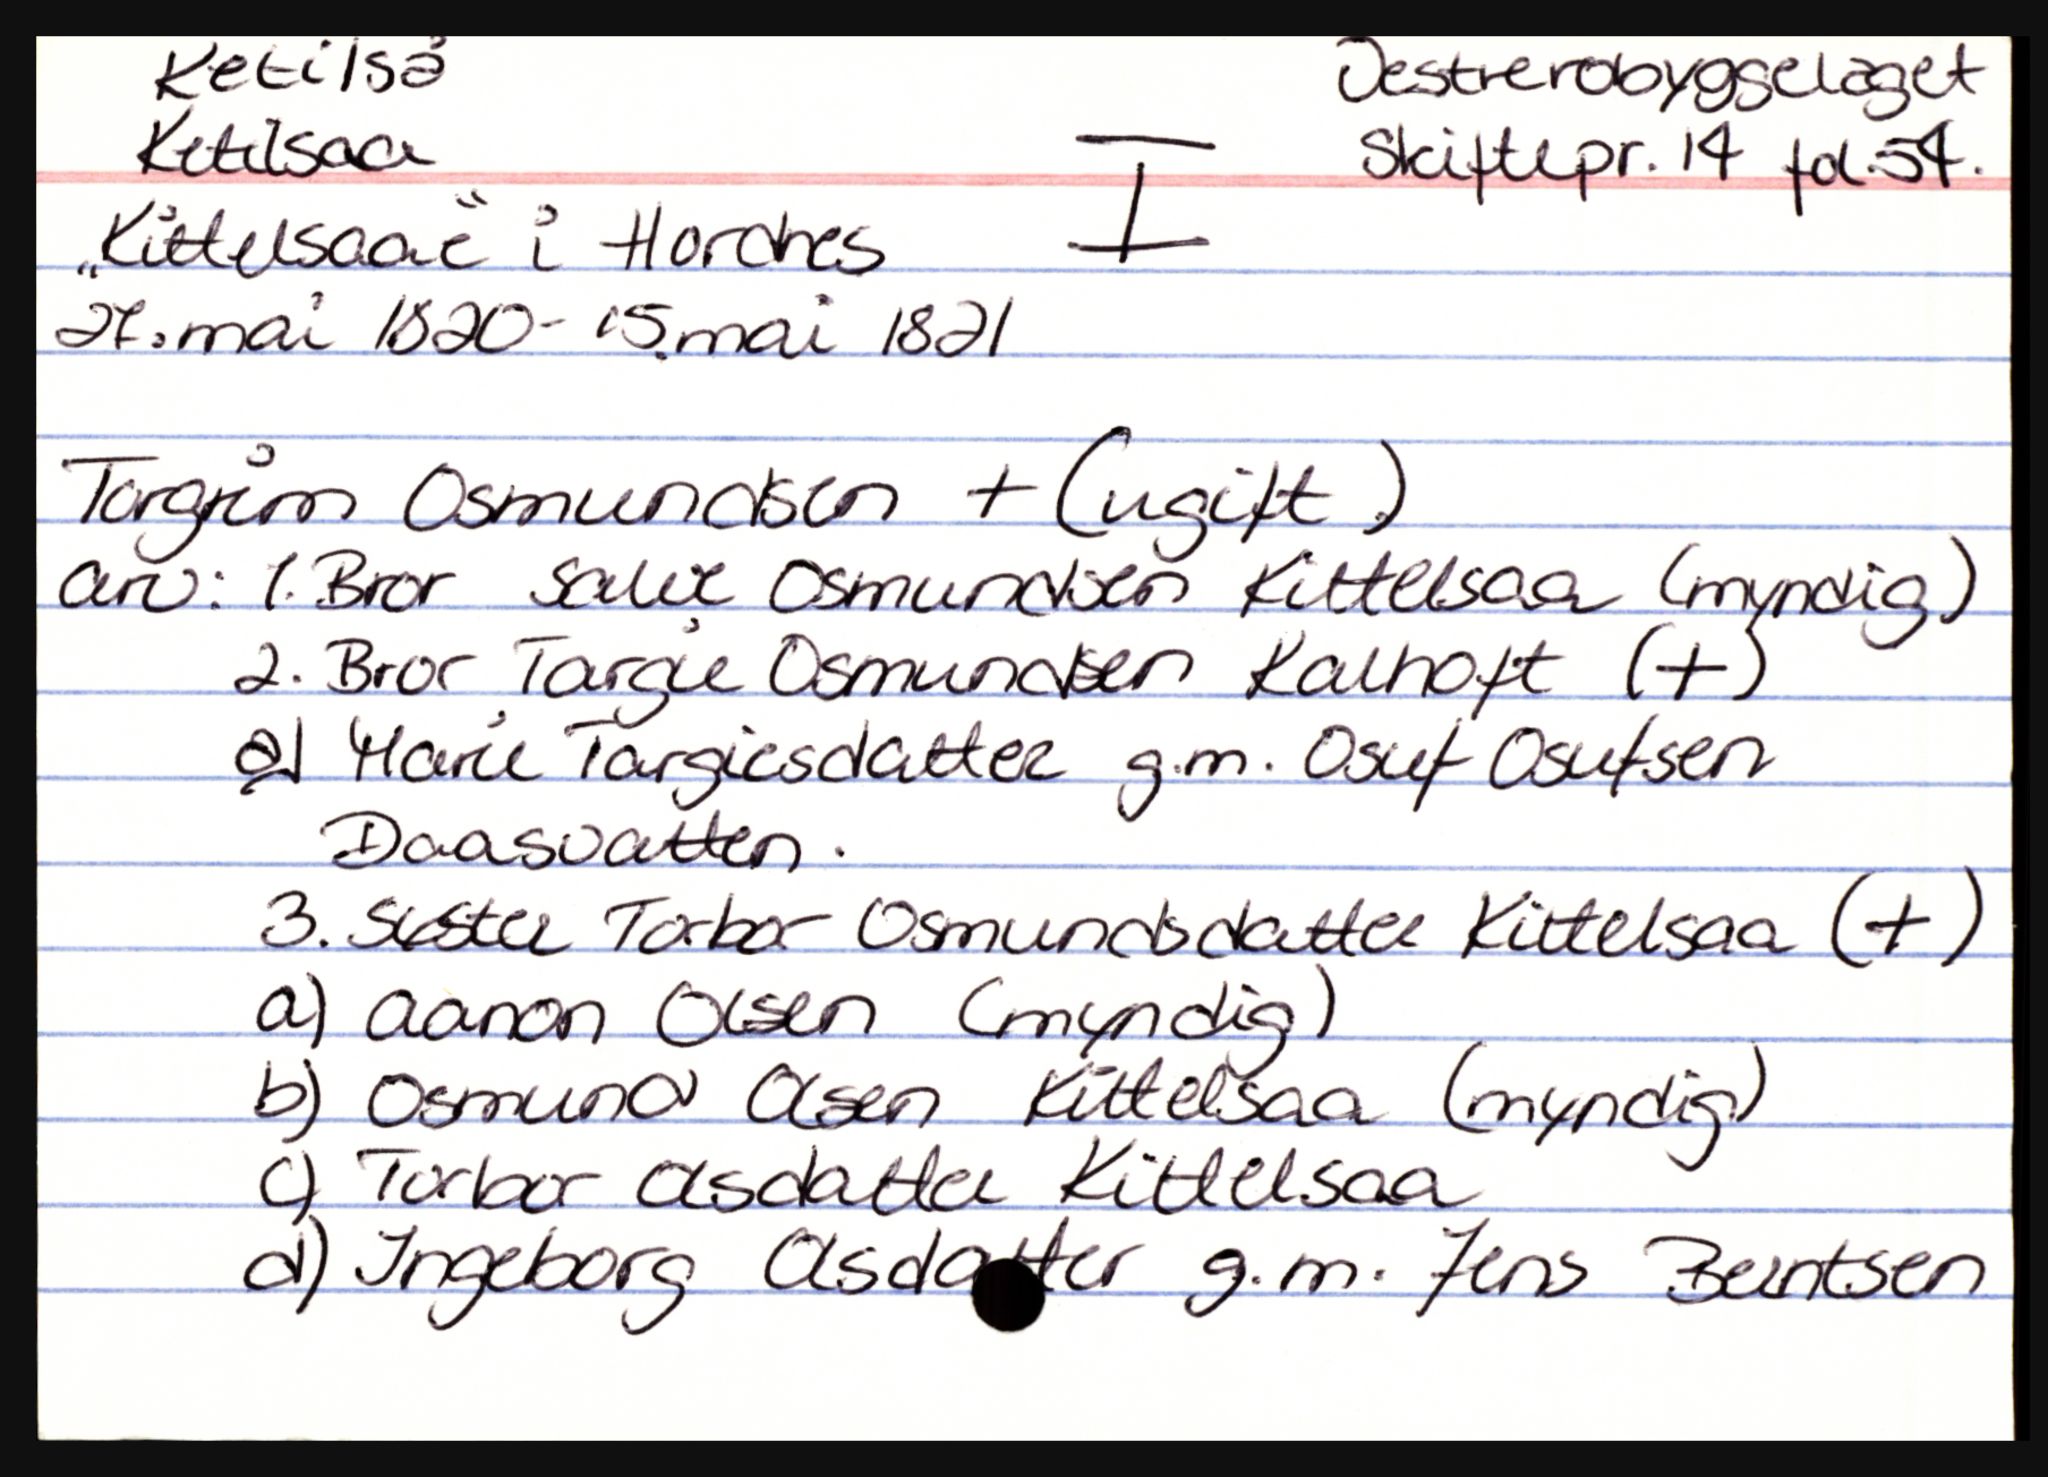 Ketilså
Vestrerobyggelaget
Ketilsaa
I
Skiftepr. 14 fol. 54.
„Kittelsaae“ i Hordnes
27. mai 1820 - 15. mai 1821
Torgrim Osmundsen + (ugift)
arv: 1. Bror Salve Osmundsen Kittelsaa (myndig)
2. Bror Targie Osmundsen Kalhoft (+)
a) Marie Targiesdatter g.m. Osuf Osufsen
Daasvatten.
3. Søster Torbor Osmundsdatter Kittelsaa (+)
a) Aanon Olsen (myndig)
b) Osmund Olsen Kittelsaa (myndig)
c) Torbor Olsdatter Kittelsaa
d) Ingeborg Olsdatter g.m. Jens Berntsen